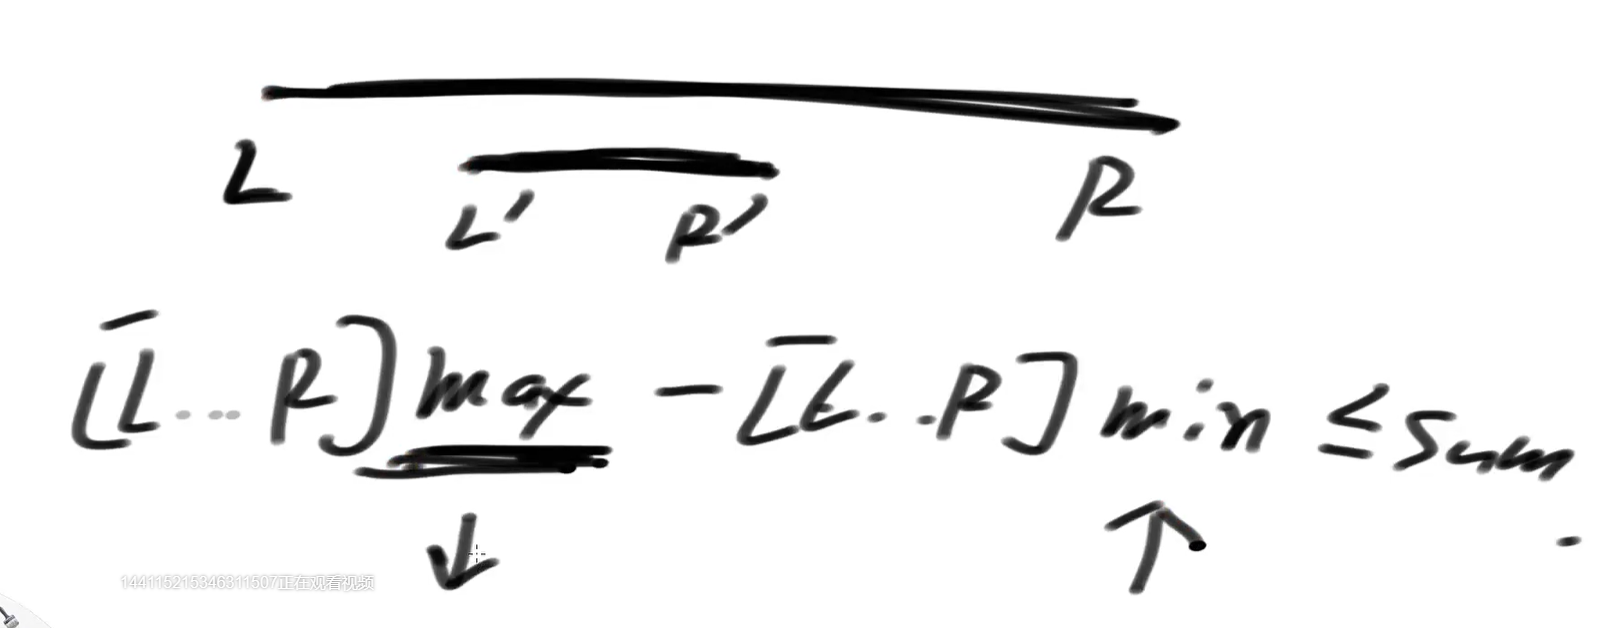 L R
L' R'
[L...R]max - [L...R]min ≤ Sum
144115215346311507正在观看视频